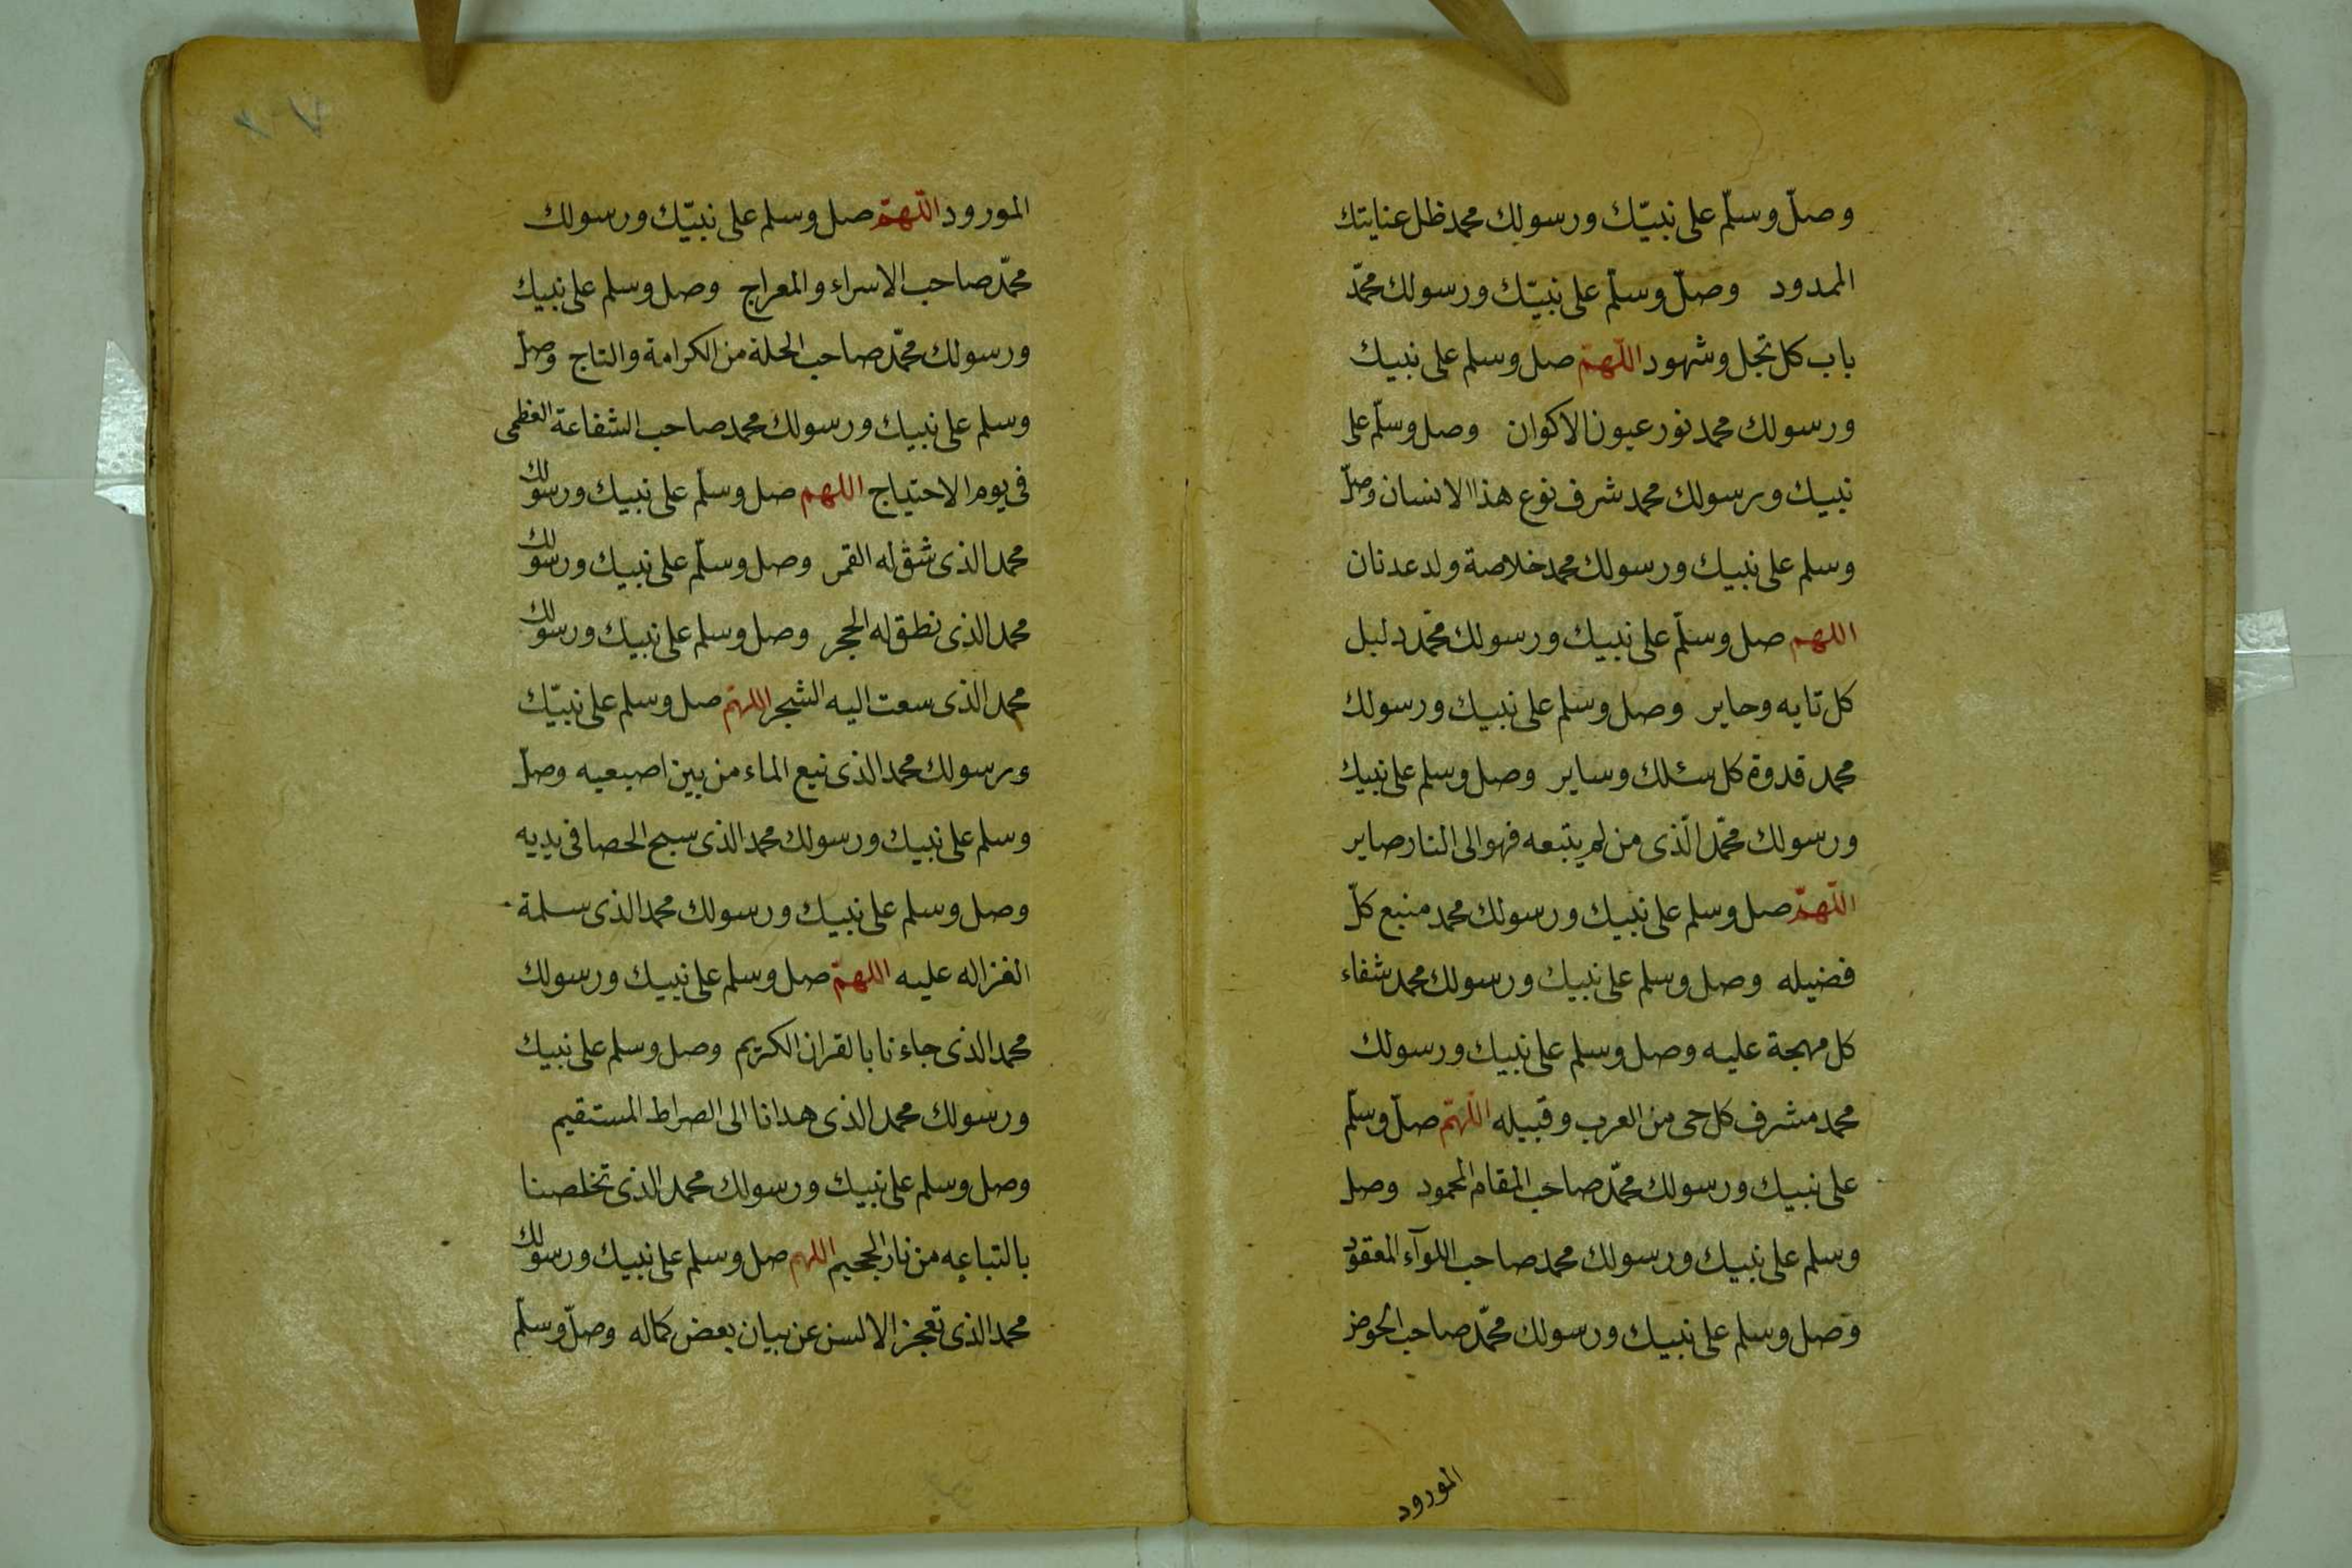 وصلّ وسلّم على نبيّك ورسولك محمد ظل عنايتك
الممدود وصلّ وسلّم على نبيّك ورسولك محمّد
باب كل تجل وشهود اللّهمّ صل وسلم على نبيك
ورسولك محمد نور عيون الاكوان وصل وسلّم على
نبيك ورسولك محمد شرف نوع هذا الانسان وصلّ
وسلم على نبيك ورسولك محمد خلاصة ولد عدنان
اللهم صل وسلّم على نبيك ورسولك محمّد دليل
كل تايه وحاير وصل وسلم على نبيك ورسولك
محمد قدوة كل سئلك وساير وصل وسلم على نبيك
ورسولك محمّد الّذى من لم يتبعه فهو الى النار صاير
اللّهمّ صل وسلم على نبيك ورسولك محمد منبع كلّ
فضيله وصل وسلم على نبيك ورسولك محمد شفاء
كل مهجة عليه وصل وسلم على نبيك ورسولك
محمد مشرف كل حى من العرب وقبيله اللّهمّ صلّ وسلّم
على نبيك ورسولك محمّد صاحب المقام المحمود وصل
وسلم على نبيك ورسولك محمد صاحب اللوآء المعقود
وصل وسلم على نبيك ورسولك محمّد صاحب الحوض
المورود
المورود اللّهمّ صل وسلم على نبيّك ورسولك
محمّد صاحب الاسراء والمعراج وصل وسلم على نبيك
ورسولك محمّد صاحب الحلة من الكرامة والتاج وصلّ
وسلم على نبيك ورسولك محمد صاحب الشفاعة العظمى
فى يوم الاحتياج اللهم صل وسلّم على نبيك ورسولك
محمد الذى شق له القمر وصل وسلّم على نبيك ورسولك
محمد الذى نطق له الحجر وصل وسلم على نبيك ورسولك
محمد الذى سعت اليه الشجر اللهمّ صل وسلم على نبيّك
ورسولك محمد الذى نبع الماء من بين اصبعيه وصلّ
وسلم على نبيك ورسولك محمد الذى سبح الحصا فى يديه
وصل وسلم على نبيك ورسولك محمد الذى سلمة
الغزاله عليه اللهمّ صل وسلم على نبيك ورسولك
محمد الذى جاءنا بالقران الكريم وصل وسلم على نبيك
ورسولك محمد الذى هدانا الى الصراط المستقيم
وصل وسلم على نبيك ورسولك محمد الذى تخلصنا
بالتباعه من نار الجحيم اللهم صل وسلم على نبيك ورسولك
محمد الذى تعجز الالسن عن بيان بعض كماله وصلّ وسلّم